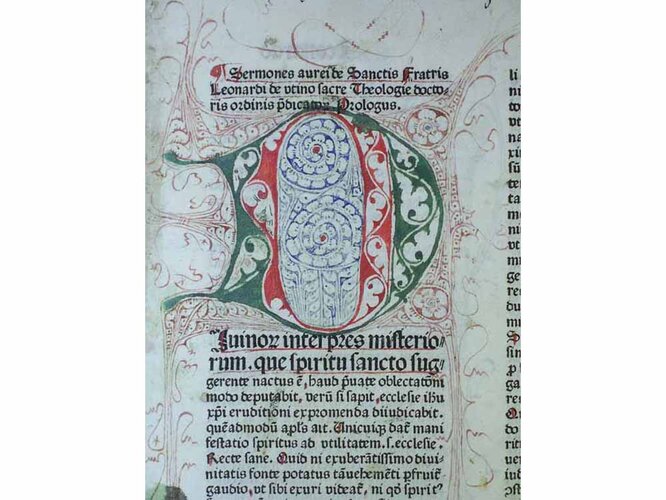 ¶ Sermones aurei de Sanctis Fratris
Leonardi de vtino sacre Theologie docto-
ris ordinis p̄dicatoꝝ Prologus.
Diuinoꝝ interpres misterio-
rum. que spiritu sancto sug-
gerente nactus ē, haud p̄uate oblectatōni
modo deputabit, verū si sapit, ecclesie ihu
xp̄i eruditioni expromenda diiudicabit.
quēadmodū apl̄s ait. Unicuiqꝫ dat̄ mani
festatio spiritus ad vtilitatem .s. ecclesie.
Recte sane. Quid ni exuberātissimo diui-
nitatis fonte potatus tā vehemēti ꝑfruit̄
gaudio, vt sibi exuri videat̄, ni qȝ spiritꝰ